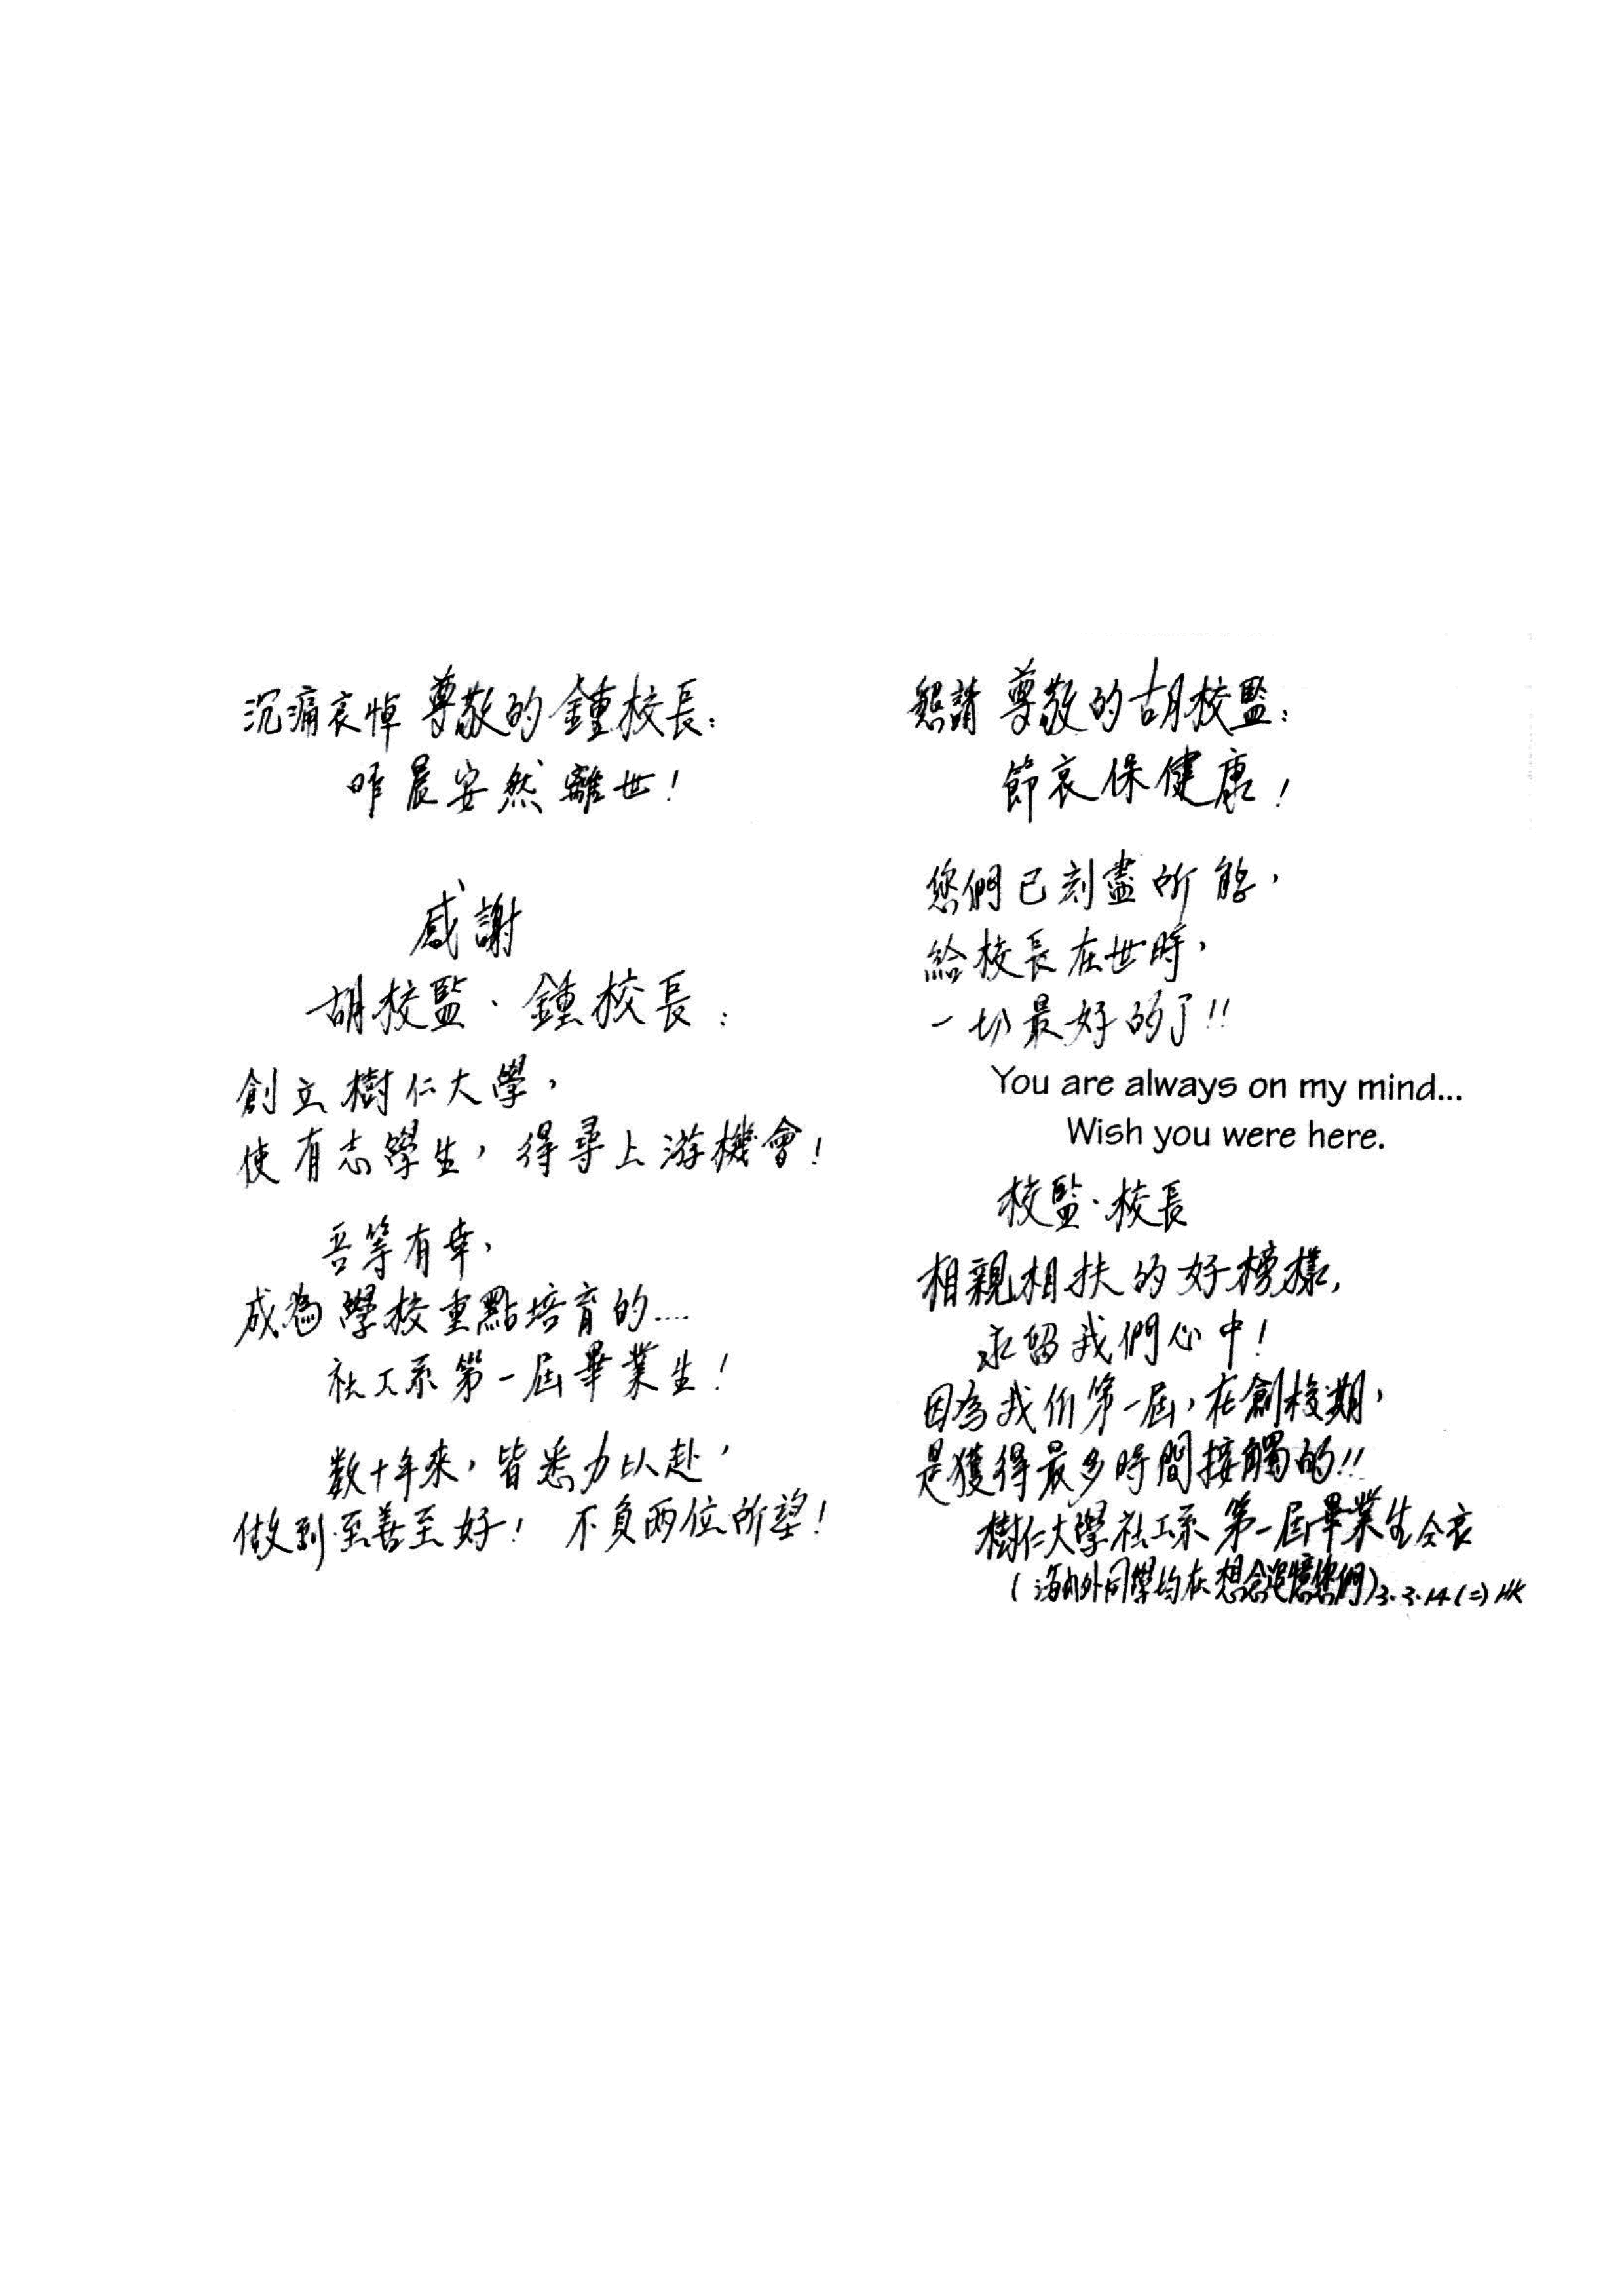 沉痛哀悼 尊敬的 鍾校長：
昨晨安然離世！
感謝
胡校監、鍾校長：
創立樹仁大學，
使有志學生，得尋上游機會！
吾等有幸，
成為學校重點培育的....
社工系第一屆畢業生！
数十年來，皆悉力以赴，
做到至善至好！ 不負兩位所望！
懇請 尊敬的胡校監：
節哀保健康！
您們已刻盡所能，
給校長在世時，
一切最好的了!!
You are always on my mind...
Wish you were here.
校監、校長
相親相扶的好榜樣，
永留我們心中！
因為我们第一屆，在創校期，
是獲得最多時間接觸的!!
樹仁大學社工系第一屆畢業生仝哀
(海內外同學均在想念追憶您們) 3.3.14 (二) HK